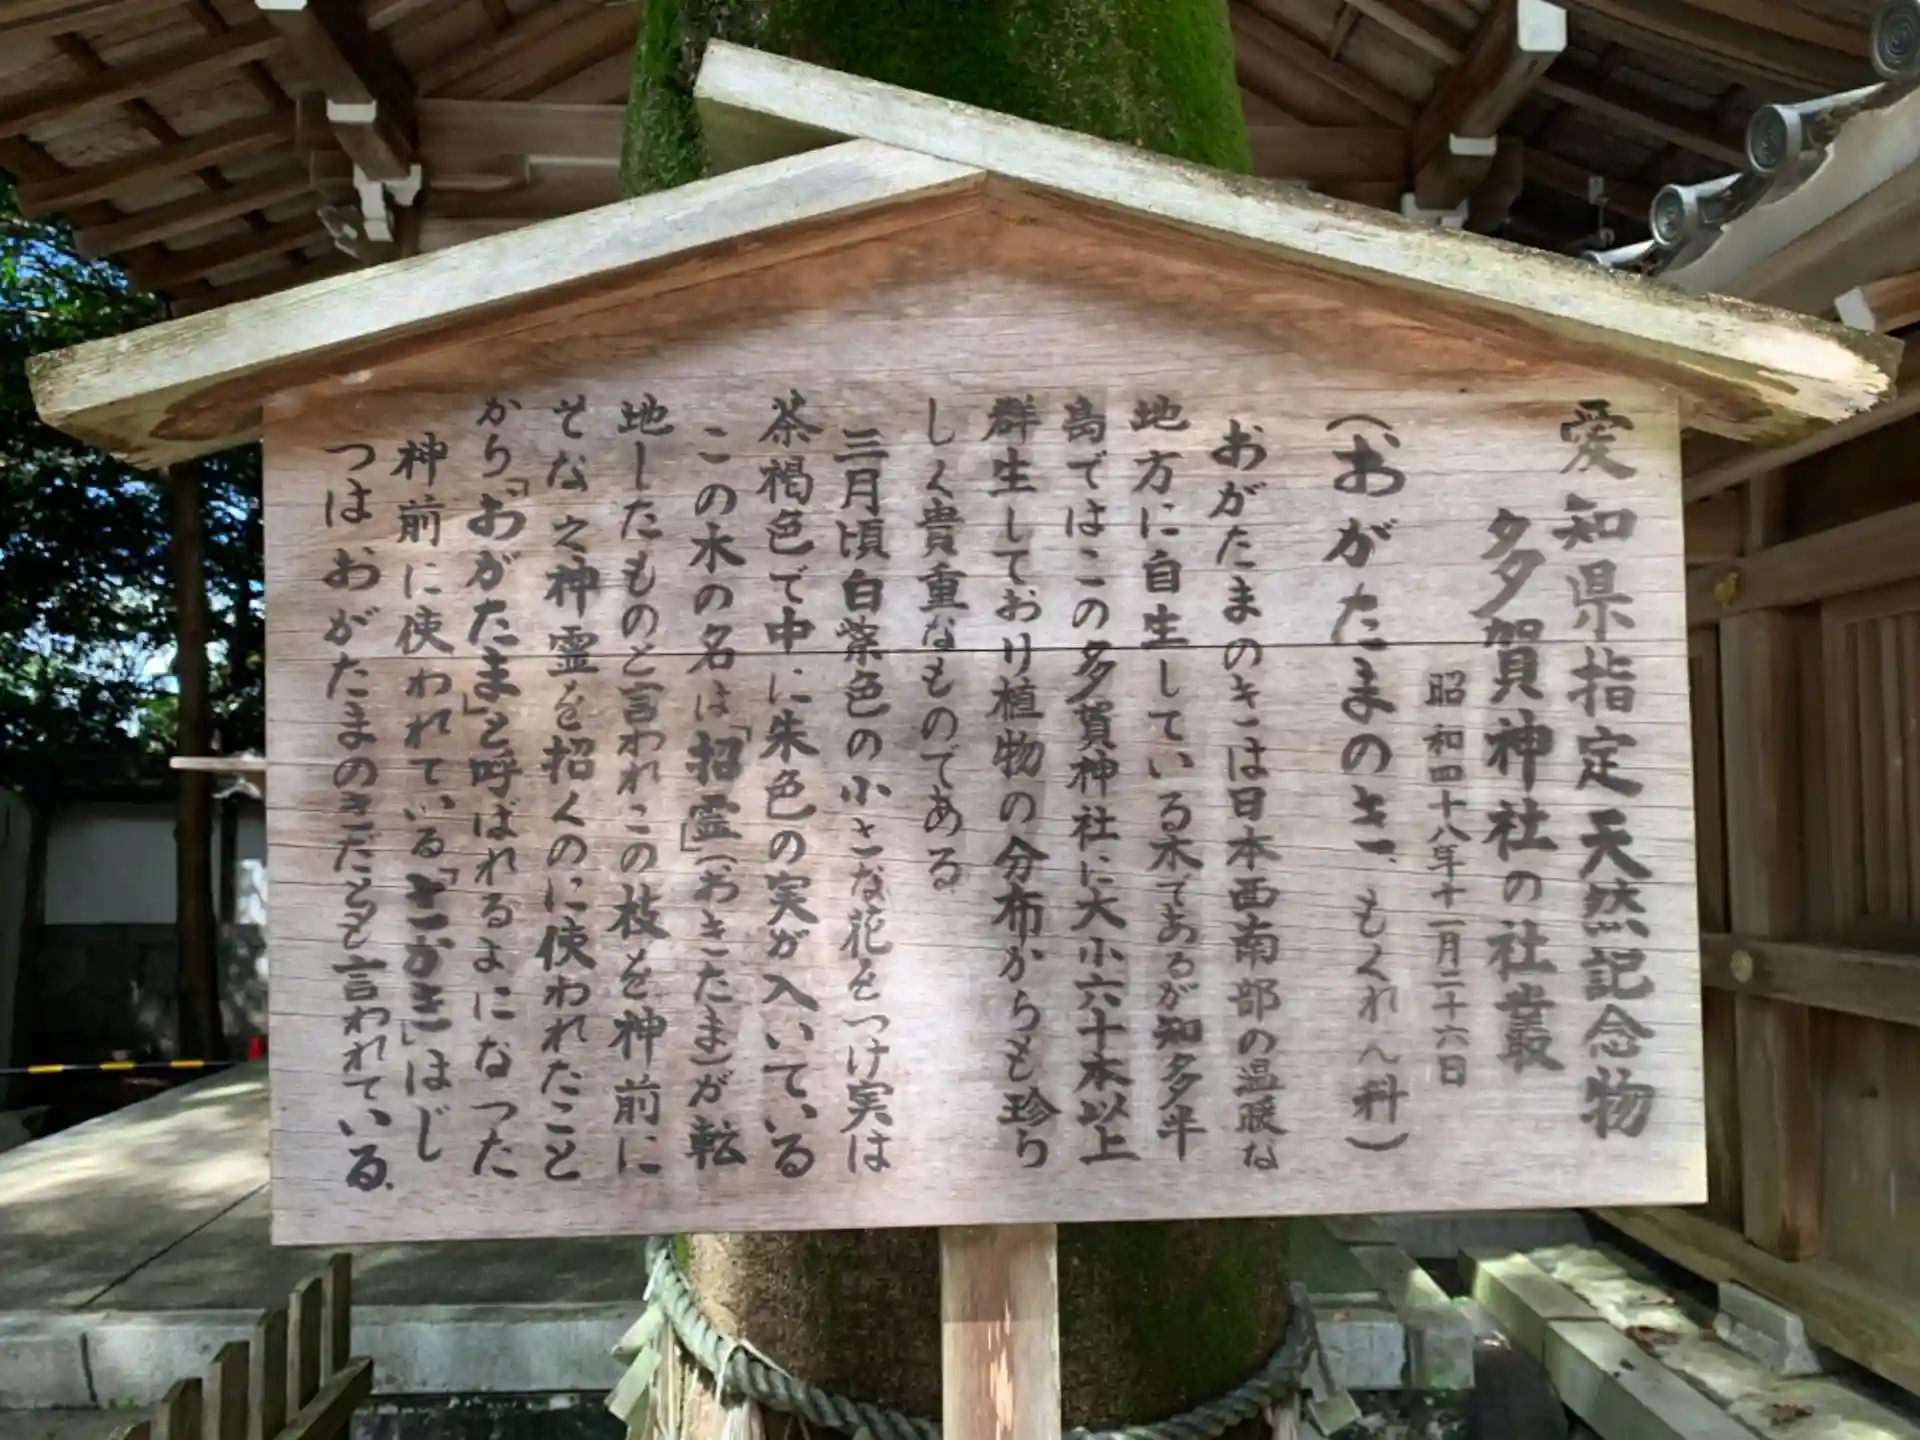 愛知県指定天然記念物
多賀神社の社叢
昭和四十八年十一月二十六日
(おがたまのき、もくれん科)
おがたまのきは日本西南部の温暖な
地方に自生している木であるが知多半
島ではこの多賀神社に大小六十本以上
群生しており植物の分布からも珍ら
しく貴重なものである
三月頃白紫色の小さな花をつけ実は
茶褐色で中に朱色の実が入いている
この木の名は「招霊」(おきたま)が転
地したものと言われこの枝を神前に
そなえ神霊を招くのに使われたこと
から「おがたま」と呼ばれるよになった
神前に使われている「さかき」はじ
つはおがたまのきだとも言われている.